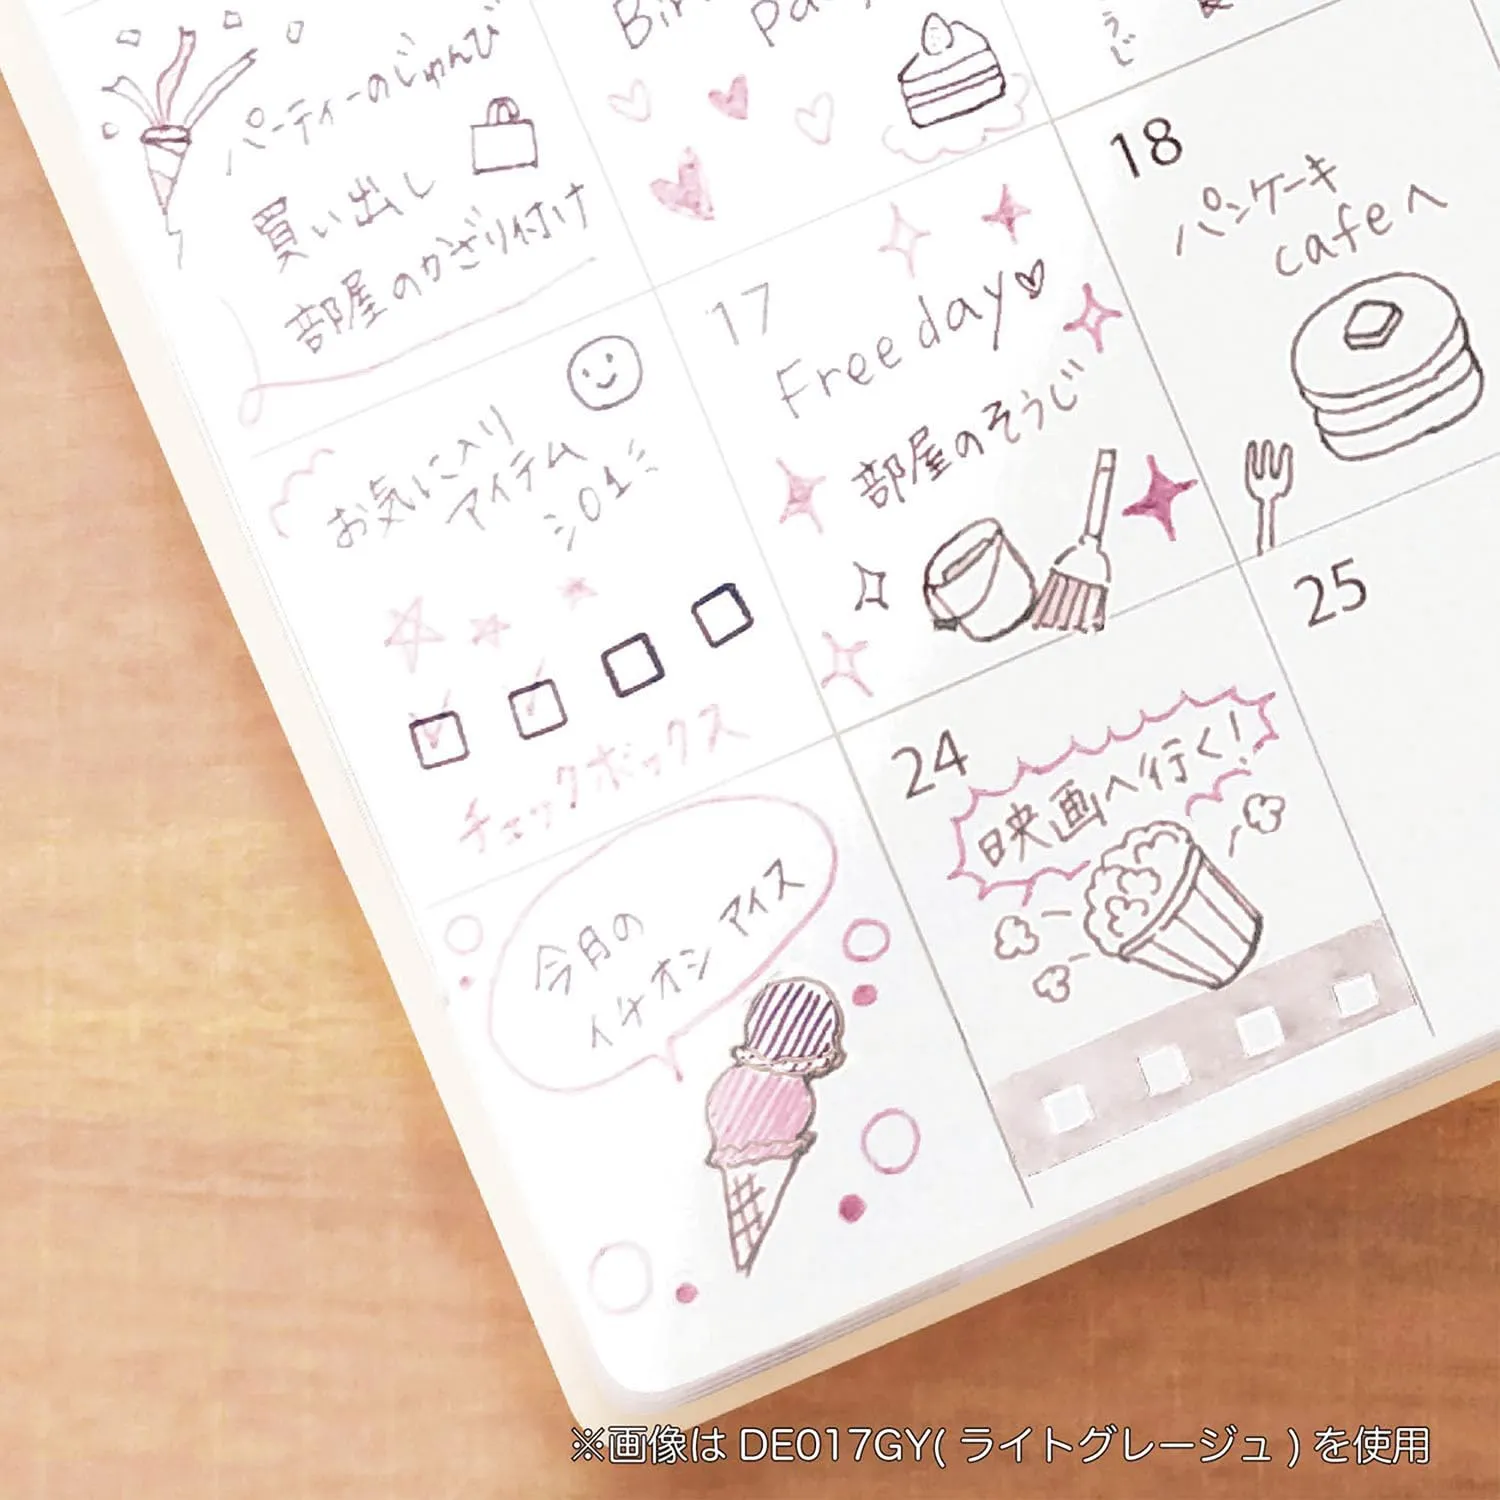 パーティーのじゅんび
買い出し
部屋のかざり付け
お気に入り
アイテム
01
チェックボックス
今月の
イチオシ アイス
17
Free day♡
部屋のそうじ
24
映画へ行く!
18
パンケーキ
cafeへ
25
※画像は DE017GY( ライトグレージュ ) を使用